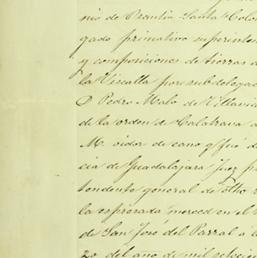 nio de Brantia Santa Colo
gado primativo superinten
y composiciones de tierras d
la Viscalla por subdelegac
D Pedro Malo de Villavic
de la orden de Calatrava d
M. oidor de cano y fué d
cia de Guadalajara Juez pr
tendente general de otho
la espresada merced en el
de San José del Parral a
del año de mil